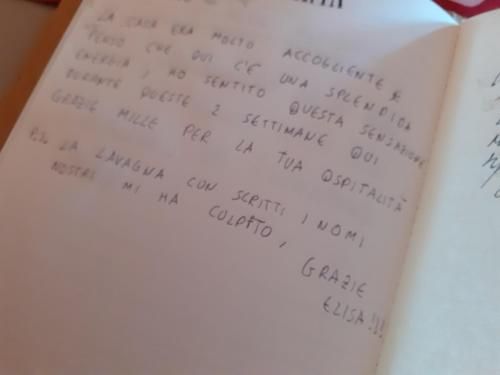 LA CASA ERA MOLTO ACCOGLIENTE &
PENSO CHE QUI C'È UNA SPLENDIDA
ENERGIA, HO SENTITO QUESTA SENSAZIONE
DURANTE QUESTE 2 SETTIMANE QUI
GRAZIE MILLE PER LA TUA OSPITALITÀ
P.S. LA LAVAGNA CON SCRITTI I NOMI
NOSTRI MI HA COLPITO,
GRAZIE
ELISA!!!